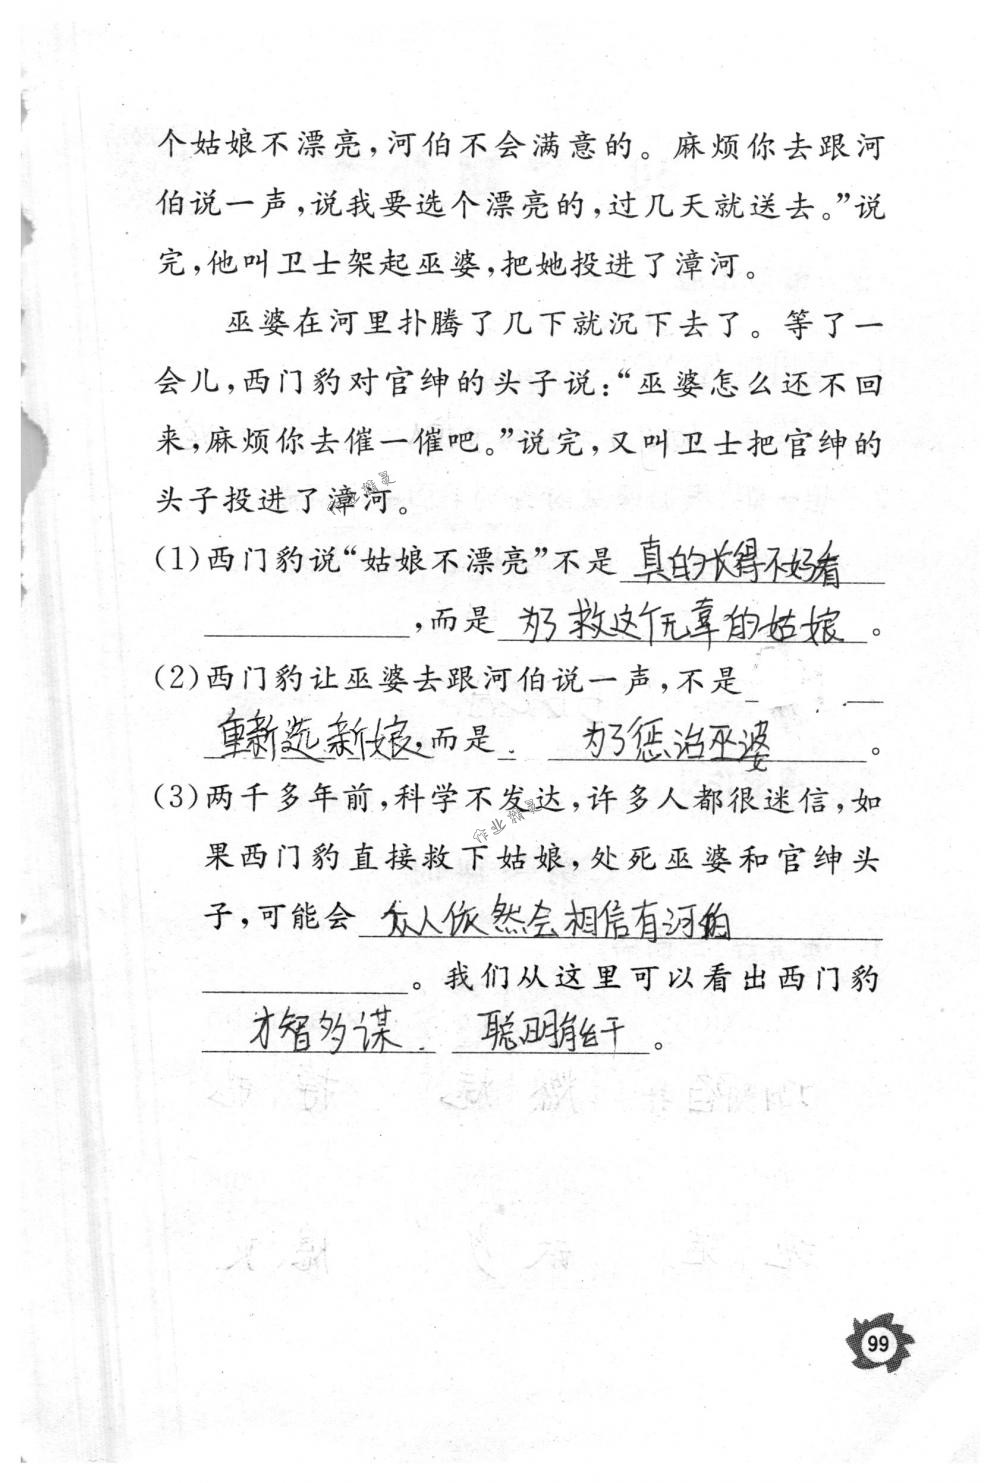 个姑娘不漂亮,河伯不会满意的。麻烦你去跟河
伯说一声,说我要选个漂亮的,过几天就送去。”说
完,他叫卫士架起巫婆,把她投进了漳河。
巫婆在河里扑腾了几下就沉下去了。等了一
会儿,西门豹对官绅的头子说:“巫婆怎么还不回
来,麻烦你去催一催吧。”说完,又叫卫士把官绅的
头子投进了漳河。
作业精灵
(1)西门豹说“姑娘不漂亮”不是 真的长得不好看
,而是 为了救这个无辜的姑娘 。
(2)西门豹让巫婆去跟河伯说一声,不是
重新选新娘,而是 为了惩治巫婆 。
(3)两千多年前,科学不发达,许多人都很迷信,如
作业精灵
果西门豹直接救下姑娘,处死巫婆和官绅头
子,可能会 众人依然会相信有河伯
。我们从这里可以看出西门豹
才智多谋 聪明能干 。
99